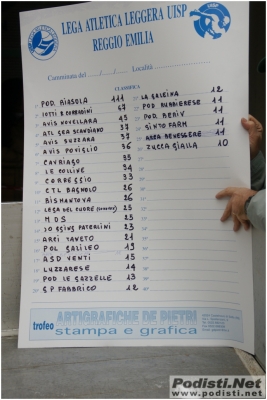 LEGA ATLETICA LEGGERA UISP
REGGIO EMILIA
Camminata del / / Località
CLASSIFICA
POD. BIASOLA 111
IOTTI B CORRADINI 67
AVIS NOVELLARA 43
ATL SEA SCANDIANO 37
AVIS SUZZARA 37
AVIS POVIGLIO 36
CAVRIAGO 35
LE COLLINE 34
CORREGGIO 33
CTL BAGNOLO 26
BISMANTOVA 26
LEGA DEL CUORE 25
MDS 25
JOGGING PATERLINI 23
ARCI TANETO 21
POL GALILEO 19
ASD VENTI 15
LUZZARESE 14
POD LE GAZZELLE 13
G.P FABBRICO 12
LA GALEINA 12
POD RUBBIERESE 11
POD BENIV 11
SINTOFARM 11
AREA BENESSERE 11
ZUCCA GIALLA 10
trofeo ARTIGRAFICHE DE PIETRI
stampa e grafica
Podisti.Net
www.podisti.net